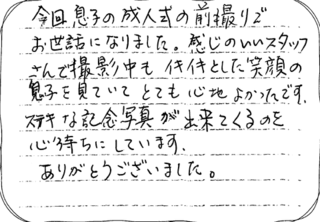 今回息子の成人式の前撮りで
お世話になりました。感じのいいスタッフ
さんで撮影中も 伸伸とした笑顔の
息子を見ていて とても心地よかったです。
ステキな記念写真が出来てくるのを
心待ちにしています。
ありがとうございました。